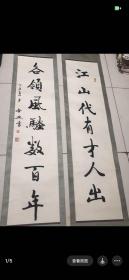 江山代有才人出
各领风骚数百年
1/5
查看原图